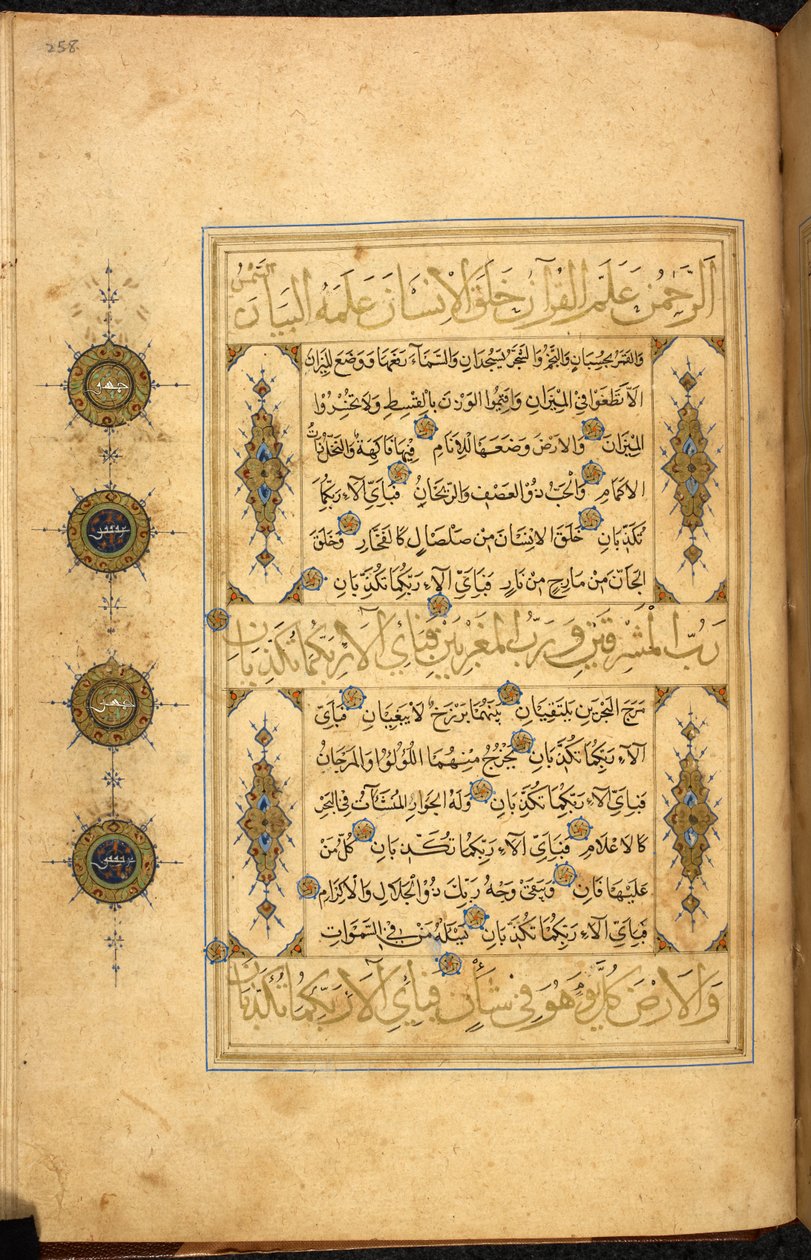 258
الرَّحْمٰنُ عَلَّمَ الْقُرْآنَ خَلَقَ الْاِنْسَانَ عَلَّمَهُ الْبَيَانَ الشَّمْسُ
وَالْقَمَرُ بِحُسْبَانٍ وَالنَّجْمُ وَالشَّجَرُ يَسْجُدَانِ وَالسَّمَاءَ رَفَعَهَا وَوَضَعَ الْمِيزَانَ
اَلَّا تَطْغَوْا فِي الْمِيزَانِ وَاَقِيمُوا الْوَزْنَ بِالْقِسْطِ وَلَا تُخْسِرُوا
الْمِيزَانَ وَالْاَرْضَ وَضَعَهَا لِلْاَنَامِ فِيهَا فَاكِهَةٌ وَالنَّخْلُ ذَاتُ
الْاَكْمَامِ وَالْحَبُّ ذُو الْعَصْفِ وَالرَّيْحَانُ فَبِاَيِّ آلَاءِ رَبِّكُمَا
تُكَذِّبَانِ خَلَقَ الْاِنْسَانَ مِنْ صَلْصَالٍ كَالْفَخَّارِ وَخَلَقَ
الْجَانَّ مِنْ مَارِجٍ مِنْ نَارٍ فَبِاَيِّ آلَاءِ رَبِّكُمَا تُكَذِّبَانِ
رَبُّ الْمَشْرِقَيْنِ وَرَبُّ الْمَغْرِبَيْنِ فَبِاَيِّ آلَاءِ رَبِّكُمَا تُكَذِّبَانِ
مَرَجَ الْبَحْرَيْنِ يَلْتَقِيَانِ بَيْنَهُمَا بَرْزَخٌ لَا يَبْغِيَانِ فَبِاَيِّ
آلَاءِ رَبِّكُمَا تُكَذِّبَانِ يَخْرُجُ مِنْهُمَا اللُّؤْلُؤُ وَالْمَرْجَانُ
فَبِاَيِّ آلَاءِ رَبِّكُمَا تُكَذِّبَانِ وَلَهُ الْجَوَارِ الْمُنْشَآتُ فِي الْبَحْرِ
كَالْاَعْلَامِ فَبِاَيِّ آلَاءِ رَبِّكُمَا تُكَذِّبَانِ كُلُّ مَنْ
عَلَيْهَا فَانٍ وَيَبْقَى وَجْهُ رَبِّكَ ذُو الْجَلَالِ وَالْاِكْرَامِ
فَبِاَيِّ آلَاءِ رَبِّكُمَا تُكَذِّبَانِ يَسْئَلُهُ مَنْ فِي السَّمٰوَاتِ
وَالْاَرْضِ كُلَّ يَوْمٍ هُوَ فِي شَأْنٍ فَبِاَيِّ آلَاءِ رَبِّكُمَا تُكَذِّبَانِ